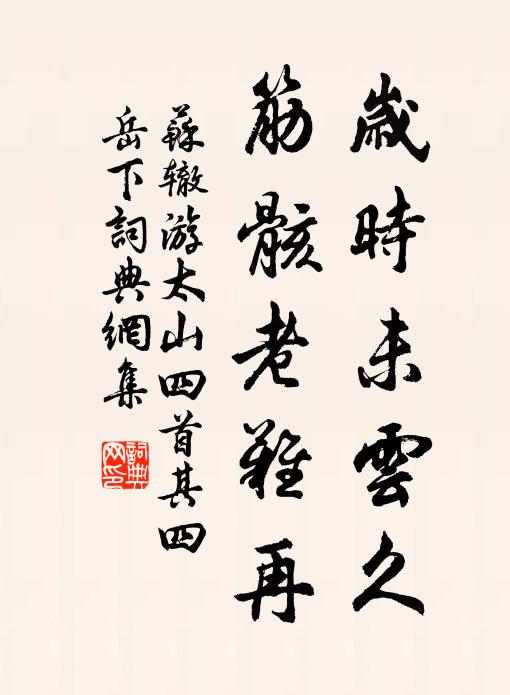 歲時未雲久
筋骸老難再
蘇辙游太山四首其四
岳下詞典網集
詞典
网印